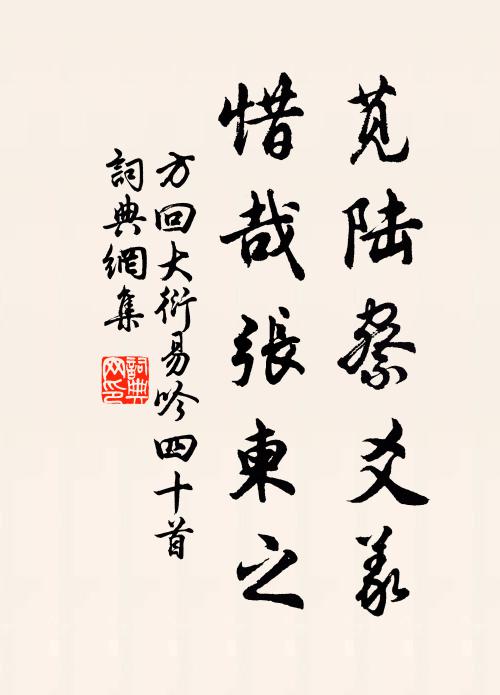 莧陸察爻義
惜哉張東之
方回大衍易吟四十首
詞典網集
詞典网印